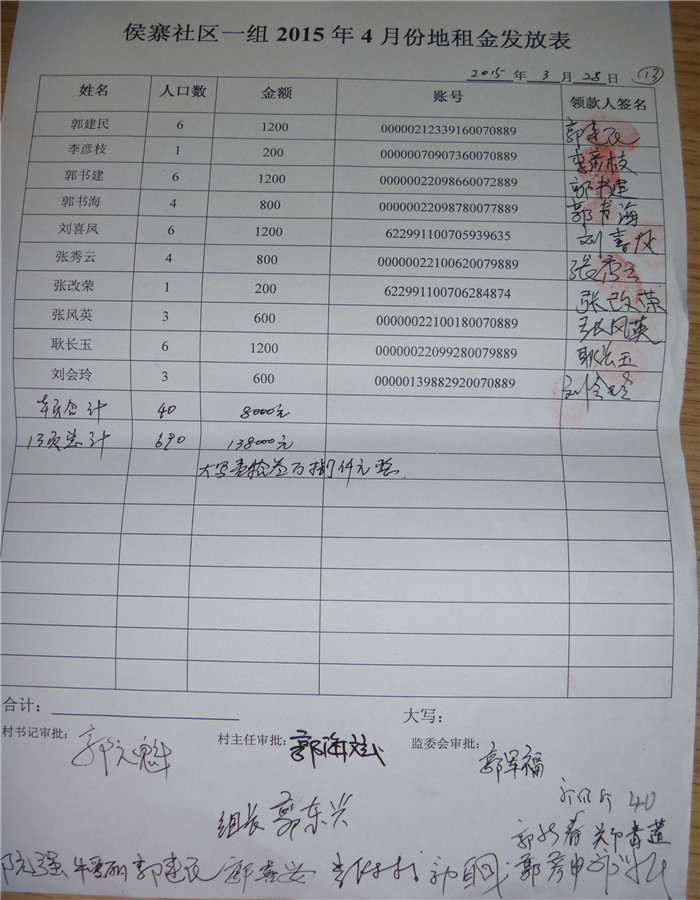 侯寨社区一组 2015 年 4 月份地租金发放表
2015 年 3 月 28 日 (13)
姓名 人口数 金额 账号 领款人签名
郭建民 6 1200 00000212339160070889 郭建民
李彦枝 1 200 00000070907360070889 李彦枝
郭书建 6 1200 00000022098660072889 郭书建
郭书海 4 800 00000022098780077889 郭书海
刘喜凤 6 1200 622991100705939635 刘喜凤
张秀云 4 800 00000022100620079889 张秀云
张改荣 1 200 622991100706284874 张改荣
张风英 3 600 00000022100180070889 张风英
耿长玉 6 1200 00000022099280079889 耿长玉
刘会玲 3 600 00000139882920070889 刘会玲
本页合计 40 8000元
13页总计 690 138000元
大写壹拾叁万捌仟元整
合计： 大写：
村书记审批： 郭元魁 村主任审批： 郭海斌 监委会审批： 郭军福
40
组长 郭东兴
郭 春 郑青莲
阮强 郭建民 郭喜兴 郭彦申